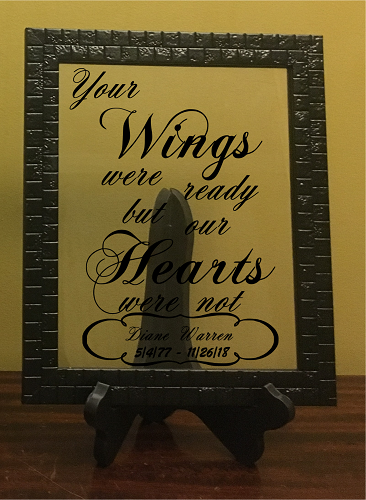 Your
Wings
were ready
but our
Hearts
were not
Diane Warren
5/4/77 - 11/26/18